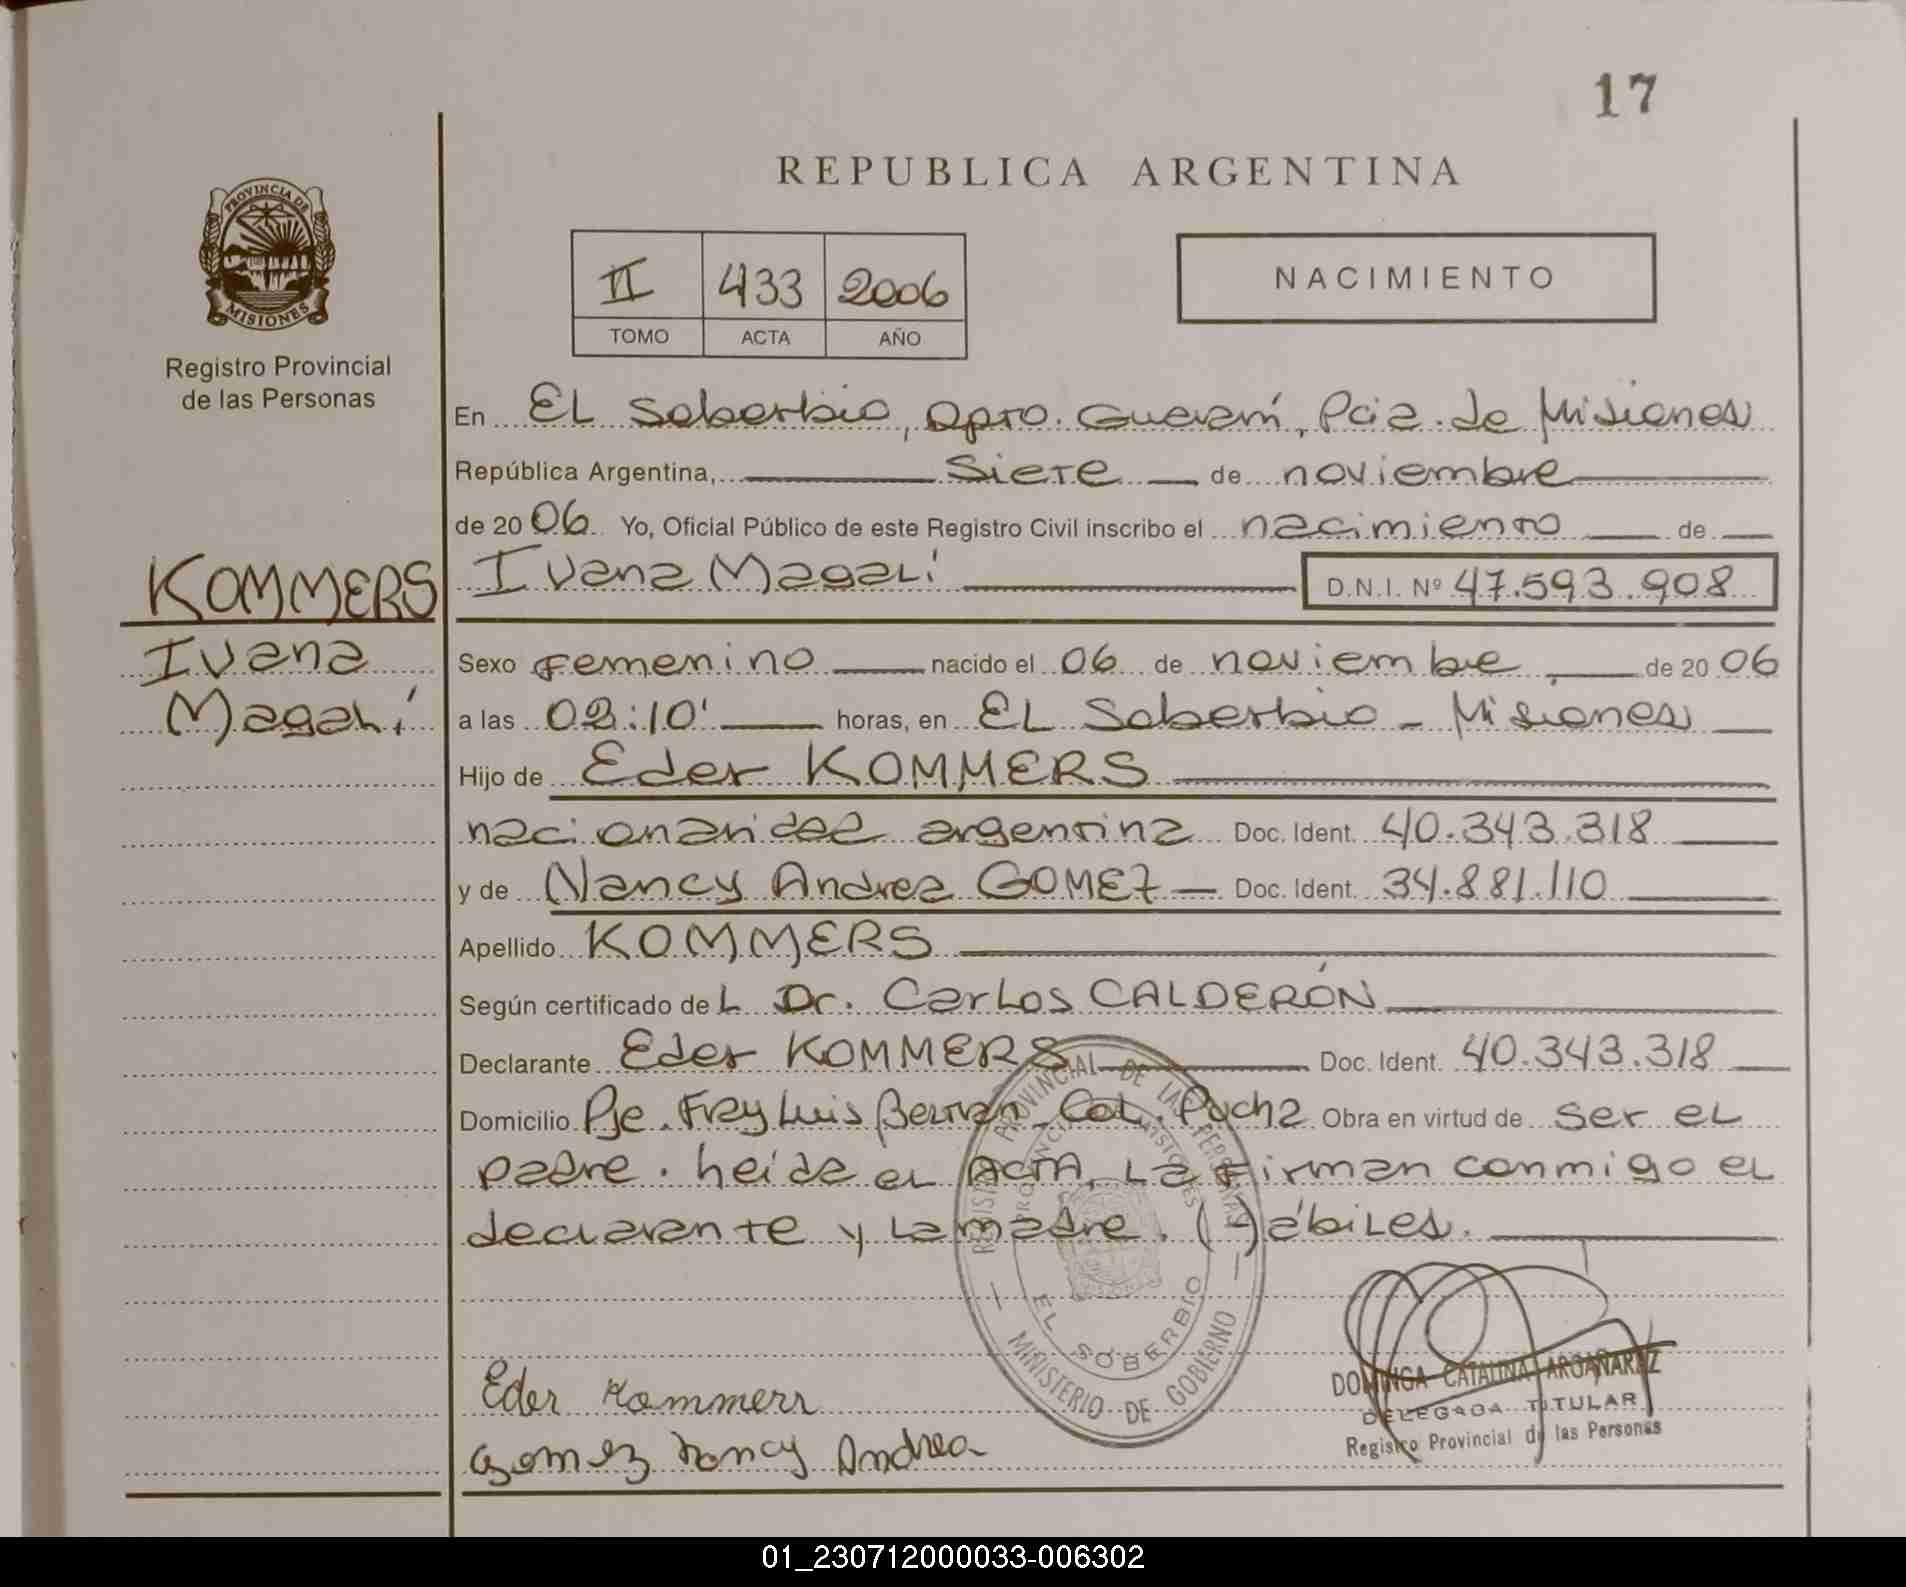 17
REPUBLICA ARGENTINA
PROVINCIA DE
MISIONES
Registro Provincial
de las Personas
II 433 2006
TOMO ACTA AÑO
NACIMIENTO
En EL Soberbio, Dpto. Guaraní, Pcia. de Misiones
República Argentina, Siete de noviembre
de 20 06 Yo, Oficial Público de este Registro Civil inscribo el nacimiento de
KOMMERS
Ivana
Magalí
Ivana Magalí D.N.I. Nº 47.593.908
Sexo Femenino nacido el 06 de noviembre de 20 06
a las 02:10' horas, en EL Soberbio - Misiones
Hijo de Eder KOMMERS
nacionalidad argentina Doc. Ident. 40.343.318
y de Nancy Andrea GOMEZ Doc. Ident. 34.881.110
Apellido KOMMERS
Según certificado de L Dr. Carlos CALDERÓN
Declarante Eder KOMMERS Doc. Ident. 40.343.318
Domicilio Pje. Fray Luis Beltran - Col. Pucha Obra en virtud de ser el
padre. heida el ACTA, La firman conmigo el
declarante y La madre. ( ) ábiles.
REGISTRO PROVINCIAL DE LAS PERSONAS
PROVINCIA MISIONES
EL SOBERBIO
MINISTERIO DE GOBIERNO
Eder Kommers
Gomez Nancy Andrea
DOMINGA CATALINA ARGAÑARAZ
DELEGADA TITULAR
Registro Provincial de las Personas
01_230712000033-006302